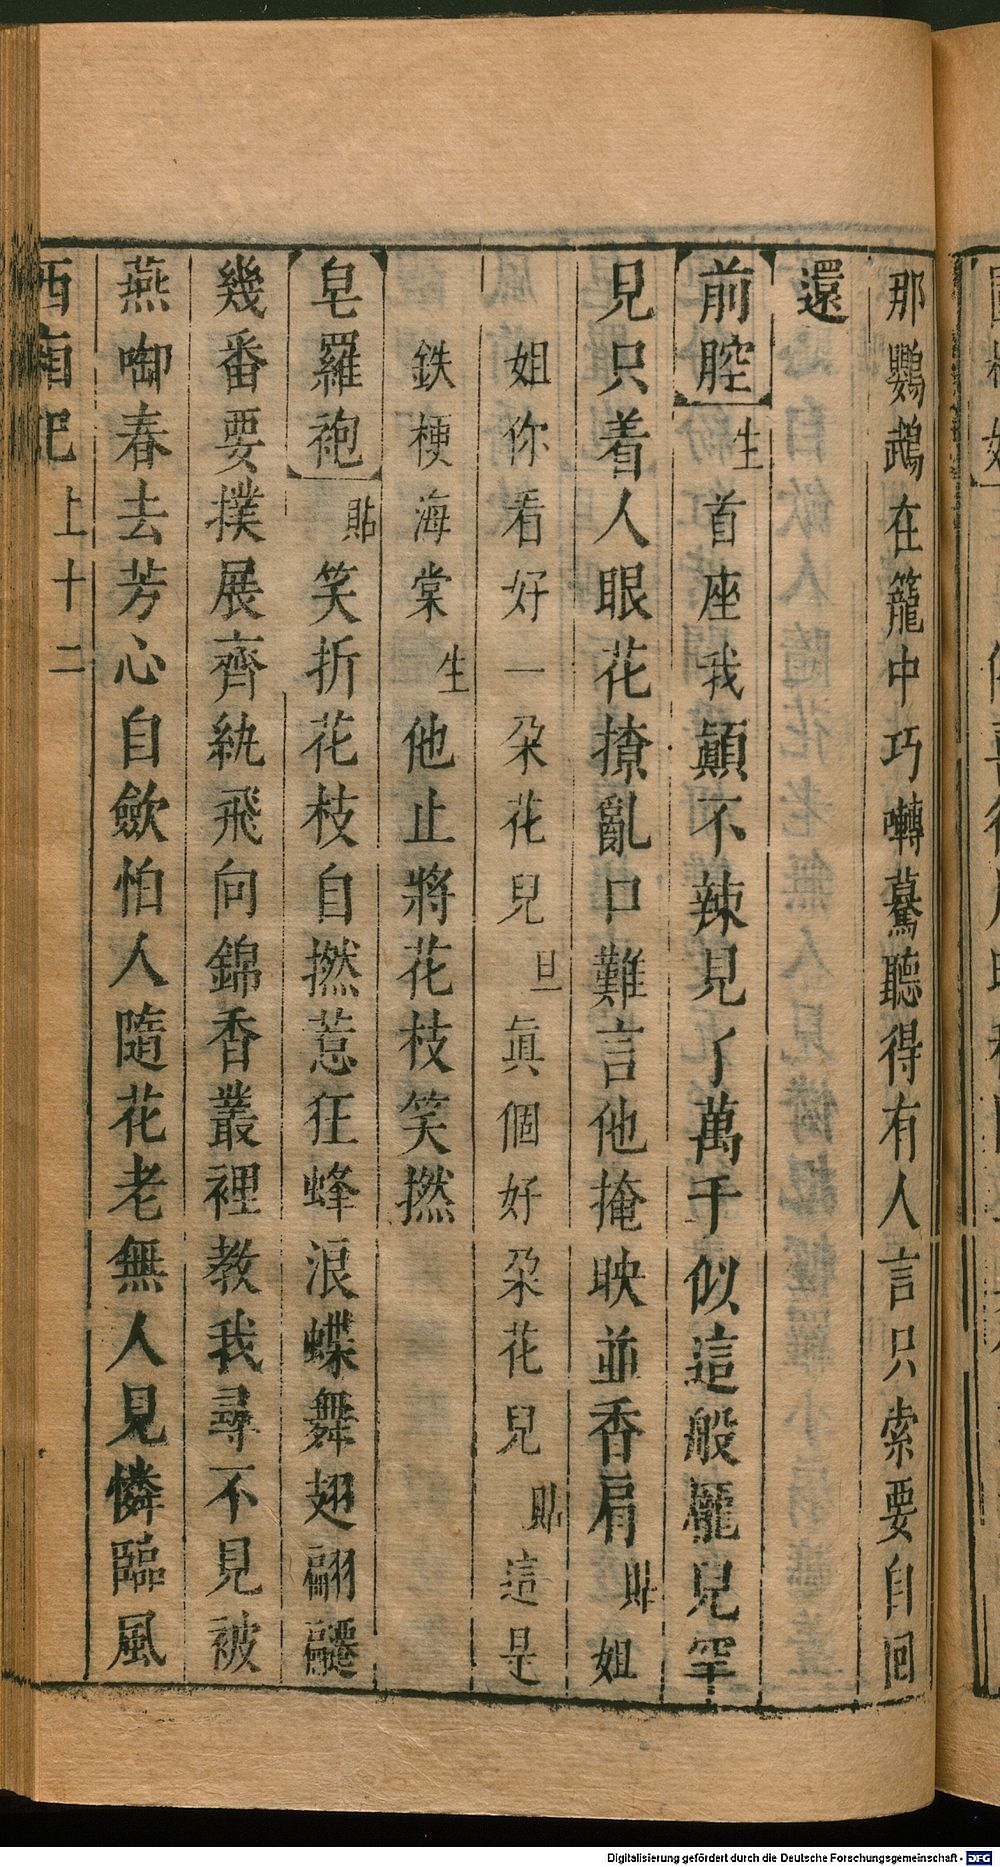 那鸚鵡在籠中巧囀驀聽得有人言只索要自回
還
前腔 生 首座我顚不辣見了萬千似這般龐兒罕
見只着人眼花撩亂口難言他掩映並香肩 貼 姐
姐你看好一朶花兒 旦 眞個好朶花兒 貼 這是
鉄梗海棠 生 他止將花枝笑撚
皂羅袍 貼 笑折花枝自撚惹狂蜂浪蝶舞翅翩躚
幾番要撲展齊紈飛向錦香叢裡教我尋不見被
燕啣春去芳心自歛怕人隨花老無人見憐臨風
西廂記 上 十二
Digitalisierung gefördert durch die Deutsche Forschungsgemeinschaft - DFG